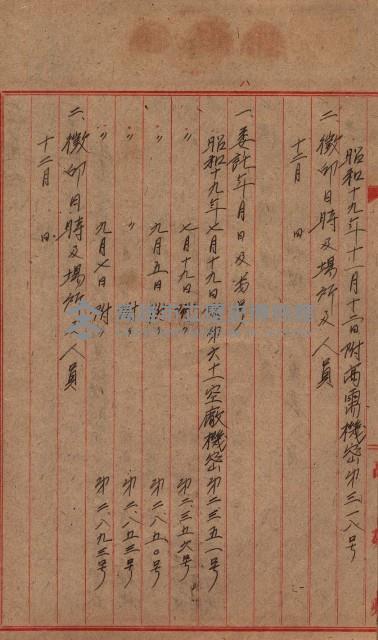 昭和十九年十一月十三日附高需機密第三一八号
二、徴用日時及場所及人員
十二月 日
一、委託年月日及番号
昭和十九年七月十九日附第六十一空廠機密第二三五一号
〃 七月十九日附〃 第二三五六号
〃 九月五日附〃 第二八五〇号
〃 〃 附〃 第二八五三号
〃 九月七日附〃 第二八九三号
二、徴用日時及場所及人員
十二月 日